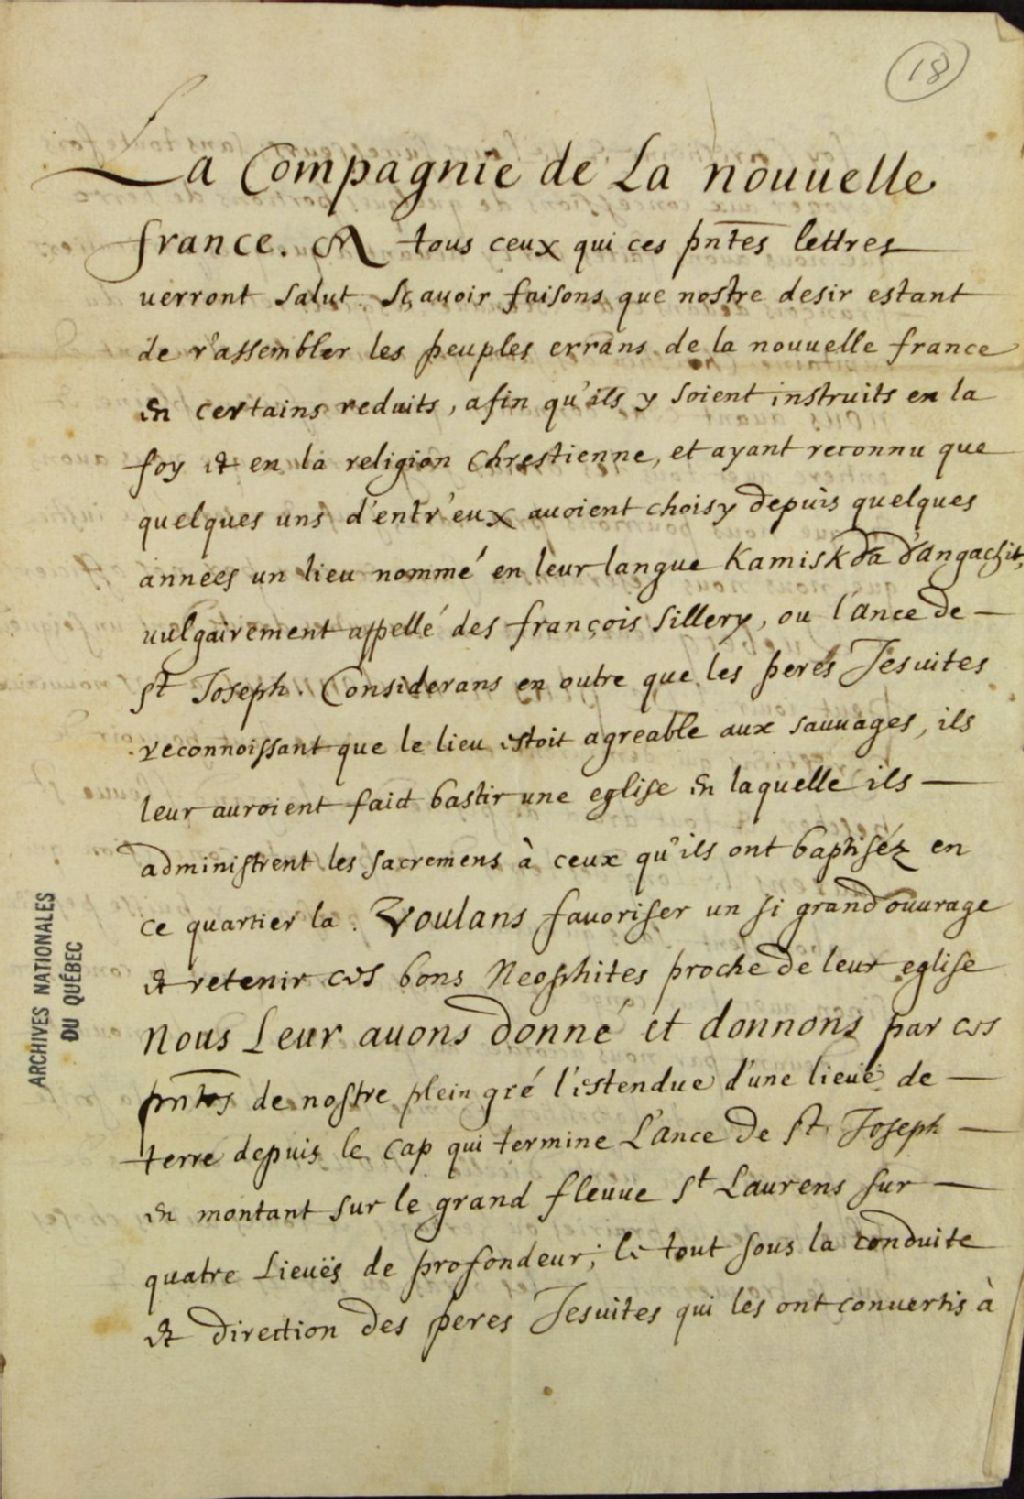 18
La Compagnie de La nouuelle
france. A tous ceux qui ces pñtes lettres
uerront salut. Sçauoir faisons que nostre desir estant
de r'assembler les peuples errans de la nouuelle france
en certains reduits, afin qu'ils y soient instruits en la
foy et en la religion Chrestienne, et ayant reconnu que
quelques uns d'entr'eux auoient choisy depuis quelques
années un lieu nommé en leur langue Kamiskda d'angachit,
uulgairement appellé des françois sillery, ou l'ance de —
st Joseph. Considerans en outre que les peres Jesuites
reconnoissant que le lieu estoit agreable aux sauuages, ils
leur auroient faict bastir une eglise en laquelle ils —
administrent les sacremens à ceux qu'ils ont baptiséz en
ce quartier la. Voulans fauoriser un si grand ouurage
et retenir ces bons Neophites proche de leur eglise
nous Leur auons donné et donnons par ces
pñtes de nostre plein gré l'estendue d'une lieuë de —
terre depuis le cap qui termine L'ance de st Joseph —
en montant sur le grand fleuue st Laurens sur —
quatre Lieuës de profondeur; le tout sous la conduite
et direction des peres Jesuites qui les ont conuertis à
ARCHIVES NATIONALES
DU QUÉBEC